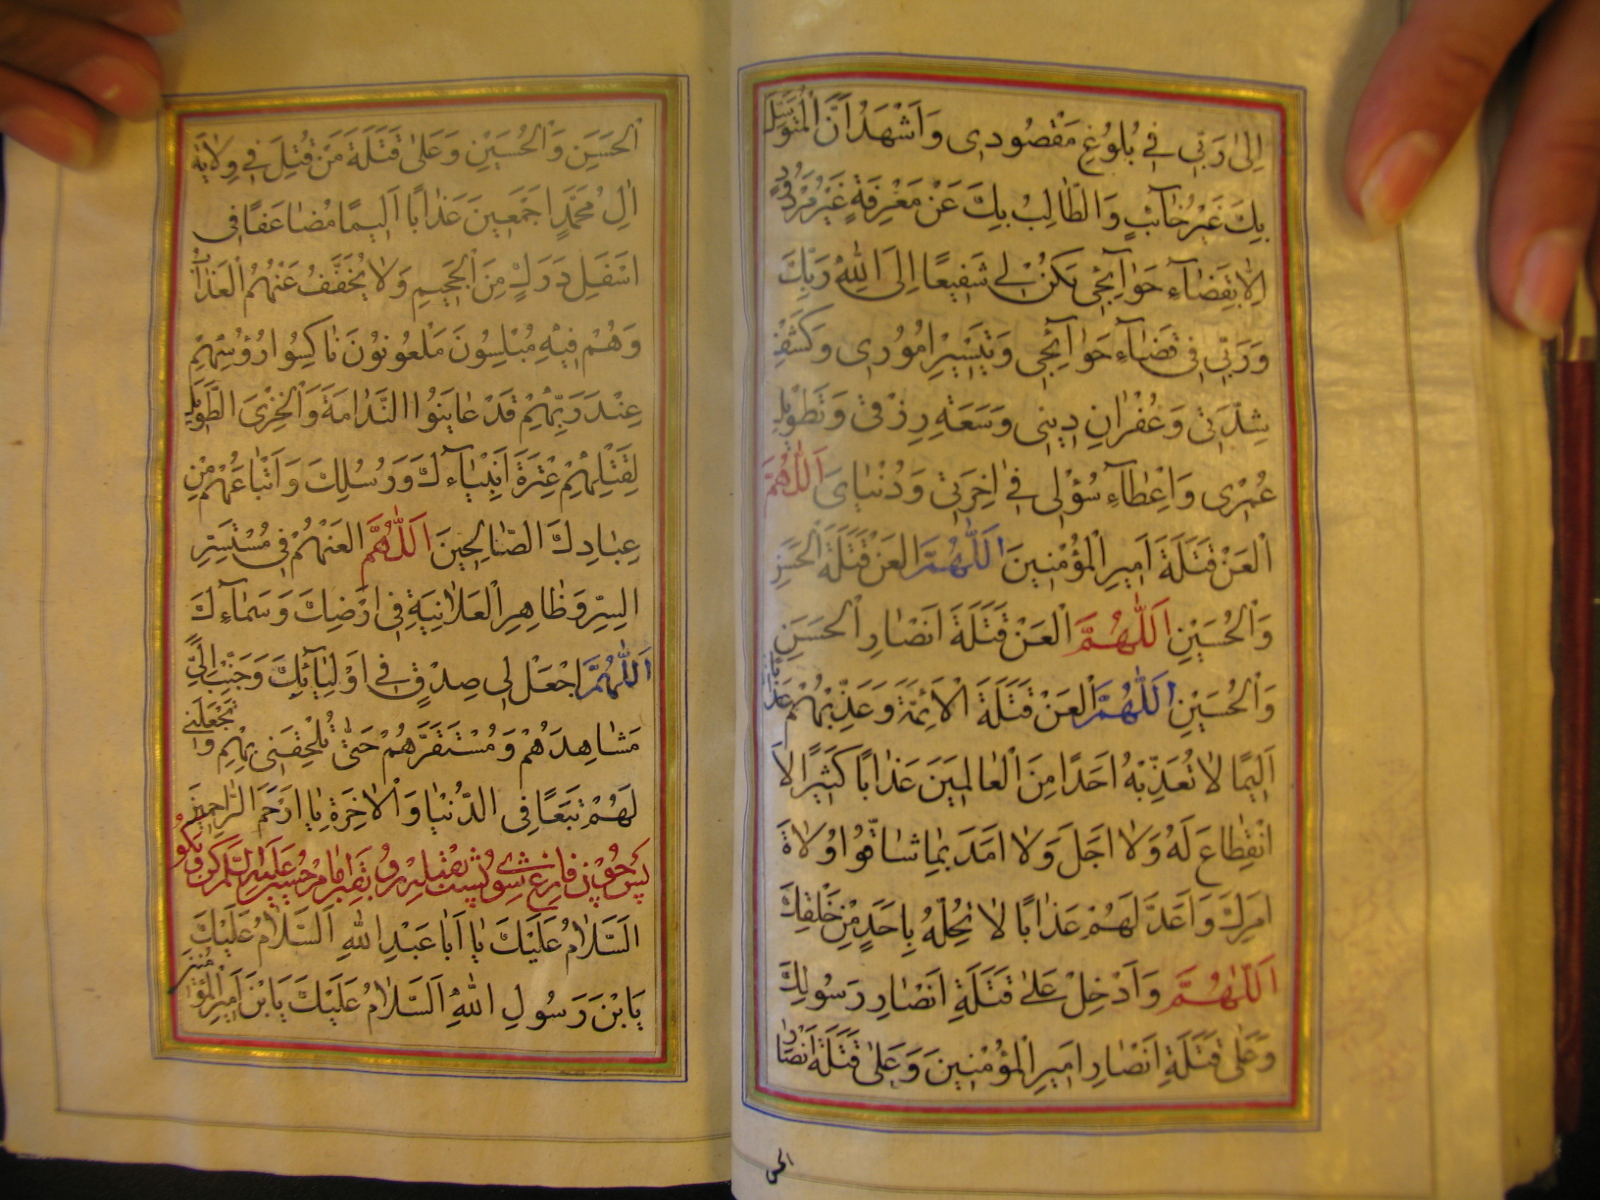 اِلىٰ رَبّى فى بُلُوغِ مَقْصُودى وَاَشْهَدُ اَنَّ الْمُتَوَسِّلَ
بِكَ غَيْرُ خٰآئِبٍ وَالطّٰالِبُ بِكَ عَنْ مَعْرِفَةٍ غَيْرُ مَرْدُودٍ
اِلاّٰ بِقَضٰآءِ حَوٰآئِجى تَكُنْ لى شَفيعًا اِلَى اللّٰهِ رَبِّكَ
وَرَبّى فى قَضٰآءِ حَوٰآئِجى وَتَيْسيرِ اُمُورى وَكَشْفِ
شِدَّتى وَغُفْرٰانِ دينى وَسَعَةِ رِزْقى وَتَطْويلِ
عُمْرى وَاِعْطٰآءِ سُؤْلى فى اٰخِرَتى وَدُنْيٰاىَ اَللّٰهُمَّ
الْعَنْ قَتَلَةَ اَميرِ الْمُؤْمِنينَ اَللّٰهُمَّ الْعَنْ قَتَلَةَ الْحَسَنِ
وَالْحُسَيْنِ اَللّٰهُمَّ الْعَنْ قَتَلَةَ اَنْصٰارِ الْحَسَنِ
وَالْحُسَيْنِ اَللّٰهُمَّ الْعَنْ قَتَلَةَ الْاَئِمَّةِ وَعَذِّبْهُمْ عَذٰابًا
اَليمًا لاٰ تُعَذِّبُهُ اَحَدًا مِنَ الْعٰالَمينَ عَذٰابًا كَثيرًا لاَ
انْقِطٰاعَ لَهُ وَلاٰ اَجَلَ وَلاٰ اَمَدَ بِمٰا شٰاقُّوا وُلاٰةَ
اَمْرِكَ وَاَعِدَّ لَهُمْ عَذٰابًا لاٰ تُحِلُّهُ بِاَحَدٍ مِنْ خَلْقِكَ
اَللّٰهُمَّ وَاَدْخِلْ عَلىٰ قَتَلَةِ اَنْصٰارِ رَسُولِكَ
وَعَلىٰ قَتَلَةِ اَنْصٰارِ اَميرِ الْمُؤْمِنينَ وَعَلىٰ قَتَلَةِ اَنْصٰارِ
الحسن
الْحَسَنِ وَالْحُسَيْنِ وَعَلىٰ قَتَلَةِ مَنْ قُتِلَ فى وِلاٰيَةِ
اٰلِ مُحَمَّدٍ اَجْمَعينَ عَذٰابًا اَليمًا مُضٰاعَفًا فى
اَسْفَلِ دَرَكٍ مِنَ الْجَحيمِ وَلاٰ يُخَفَّفُ عَنْهُمُ الْعَذٰابُ
وَهُمْ فيهِ مُبْلِسُونَ مَلْعُونُونَ نٰاكِسُوا رُؤُسِهِمْ
عِنْدَ رَبِّهِمْ قَدْ عٰايَنُوا النَّدٰامَةَ وَالْخِزْىَ الطَّويلَ
لِقَتْلِهِمْ عِتْرَةَ اَنْبِيٰآءِكَ وَرُسُلِكَ وَاَتْبٰاعَهُمْ مِنْ
عِبٰادِكَ الصّٰالِحينَ اَللّٰهُمَّ الْعَنْهُمْ فى مُسْتَسِرِّ
السِّرِّ وَظٰاهِرِ الْعَلاٰنِيَةِ فى اَرْضِكَ وَسَمٰآءِكَ
اَللّٰهُمَّ اجْعَلْ لى صِدْقٍ فى اَوْلِيٰآئِكَ وَحَبِّبْ اِلَىَّ
مَشٰاهِدَهُمْ وَمُسْتَقَرَّهُمْ حَتّٰى تُلْحِقَنى بِهِمْ وَتَجْعَلَنى
لَهُمْ تَبَعًا فى الدُّنْيٰا وَالْاٰخِرَةِ يٰا اَرْحَمَ الرّٰاحِمينَ
پس چون فارغ شوى پشت بقبله رو بقبر امام حسين عليه السلام كن و بگو
اَلسَّلاٰمُ عَلَيْكَ يٰا اَبٰا عَبْدِ اللّٰهِ اَلسَّلاٰمُ عَلَيْكَ
يَا بْنَ رَسُولِ اللّٰهِ اَلسَّلاٰمُ عَلَيْكَ يَا بْنَ اَميرِ الْمُؤْمِنينَ